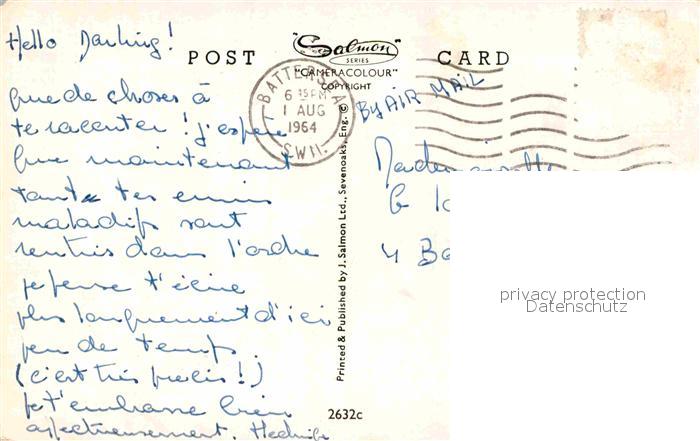 Hello Darling!
POST "Salmon" CARD
SERIES
"CAMERACOLOUR"
COPYRIGHT
BATTERSEA
6 15 PM
1 AUG
1964
S.W.11.
BY AIR MAIL
que de choses à
te raconter ! j'espère
que maintenant
toutes tes ennuis
maladifs sont
rentrés dans l'ordre
je pense t'écrire
plus longuement d'ici
peu de temps.
(c'est très précis!)
je t'embrasse bien
affectueusement.
Mademoiselle
4 Ba
Printed & Published by J. Salmon Ltd., Sevenoaks, Eng. ©
2632c
privacy protection
Datenschutz